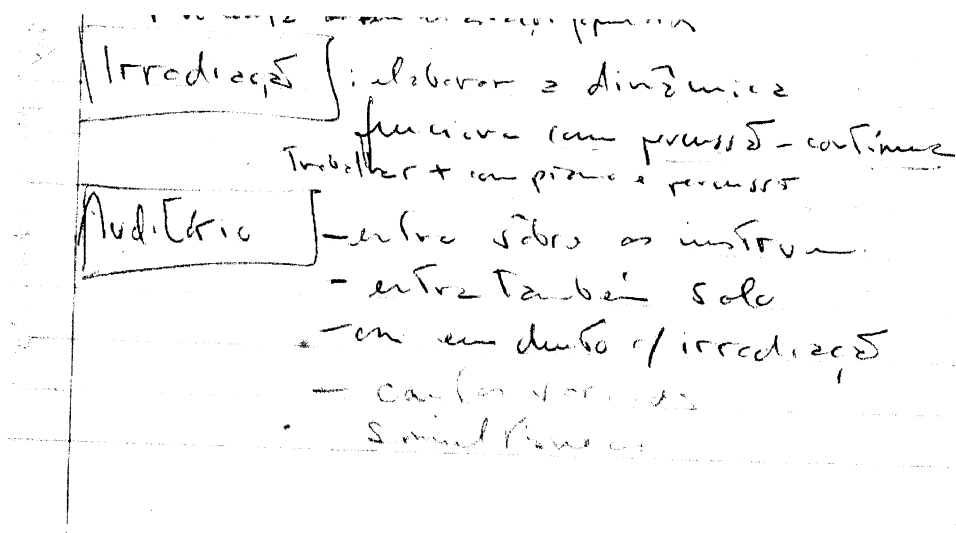 Irradiação : elaborar a dinâmica
funciona com percussão - contínua
Trabalhar + com piano e percussão
Auditório - entra sôbre os instrum
- entra também solo
- ou em dueto c/ irradiação
- cantos